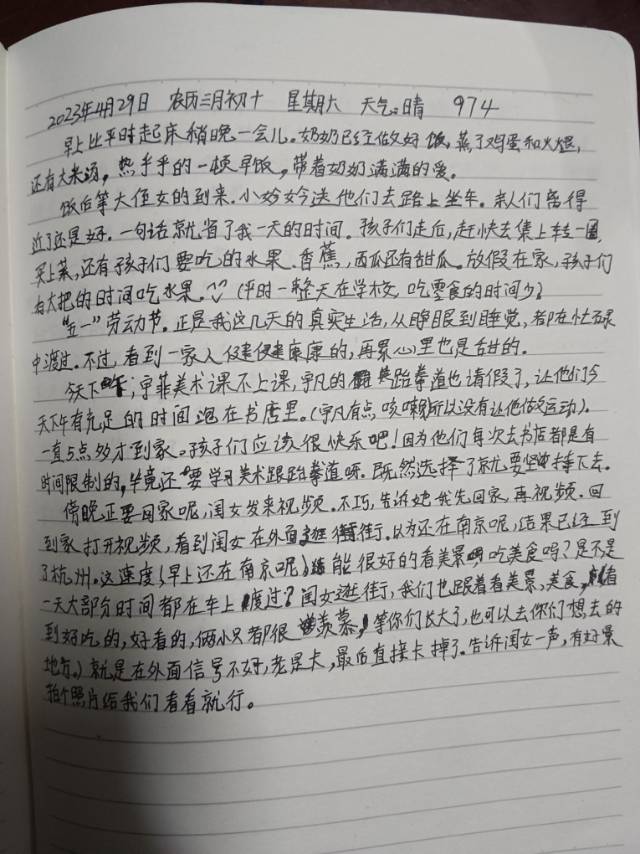 2023年4月29日 农历三月初十 星期六 天气:晴 974
早上比平时起床稍晚一会儿。奶奶已经做好饭,蒸了鸡蛋和火腿,
还有大米汤,热乎乎的一顿早饭,带着奶奶满满的爱。
饭后等大侄女的到来.小妗妗送他们去路上坐车.亲人们离得
近了还是好.一句话就省了我一天的时间.孩子们走后,赶快去集上转一圈
买上菜,还有孩子们要吃的水果.香蕉,西瓜还有甜瓜.放假在家,孩子们
有大把的时间吃水果.(平时一整天在学校,吃零食的时间少)
"五一"劳动节.正是我这几天的真实生活,从睁眼到睡觉,都在忙碌
中渡过.不过,看到一家人健健康康的,再累心里也是甜的.
今天下午;宇菲美术课不上课,宇凡的跆拳道也请假了,让他们今
天下午有充足的时间泡在书店里.(宇凡有点咳嗽所以没有让他做运动).
一直5点多才到家.孩子们应该很快乐吧!因为他们每次去书店都是有
时间限制的,毕竟还要学习美术跟跆拳道呀.既然选择了就要坚持下去.
傍晚正要回家呢,闺女发来视频.不巧,告诉她我先回家,再视频.回
到家打开视频,看到闺女在外面逛街.以为还在南京呢,结果已经到
了杭州.这速度(早上还在南京呢)能很好的看美景吃美食吗?是不是
一天大部分时间都在车上度过?闺女逛街,我们也跟着看美景,美食,看
到好吃的,好看的,俩小只都很羡慕,等你们长大了,也可以去你们想去的
地方.)就是在外面信号不好,老是卡,最后直接卡掉了.告诉闺女一声,有好景
拍个照片给我们看看就行。